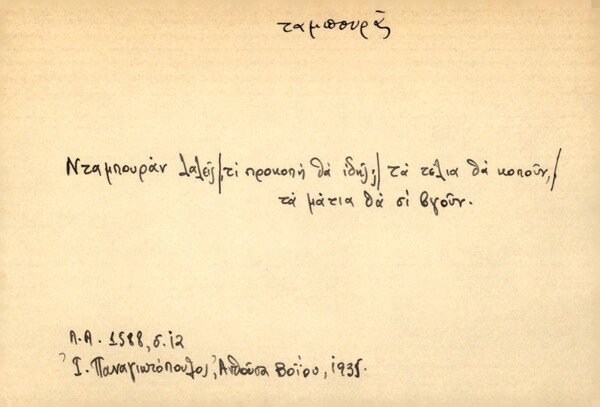 ταμπουρᾶς
Νταμπουρὰν λαλεῖς/, τί προκοπὴ θὰ ἰδῇς;/ τὰ τέλια θὰ κοποῦν,/
τὰ μάτια θὰ σὶ βγοῦν.
Λ.Α. 1588, σ. 12
Ἰ. Παναγιωτόπουλος, Βοΐου, 1935.